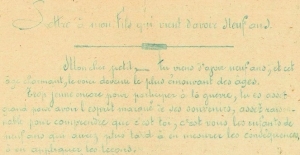 Lettre à mon fils qui vient d'avoir neuf ans.
Mon cher petit — Tu viens d'avoir neuf ans, et cet
âge charmant, te voilà devenu le plus émouvant des âges.
Trop jeune encore pour participer à la guerre, tu es assez
grand pour avoir l'esprit marqué de ses souvenirs, assez raison-
nable pour comprendre que c'est toi, c'est vous les enfants de
neuf ans qui aurez plus tard à en mesurer les conséquences
à en appliquer les leçons.